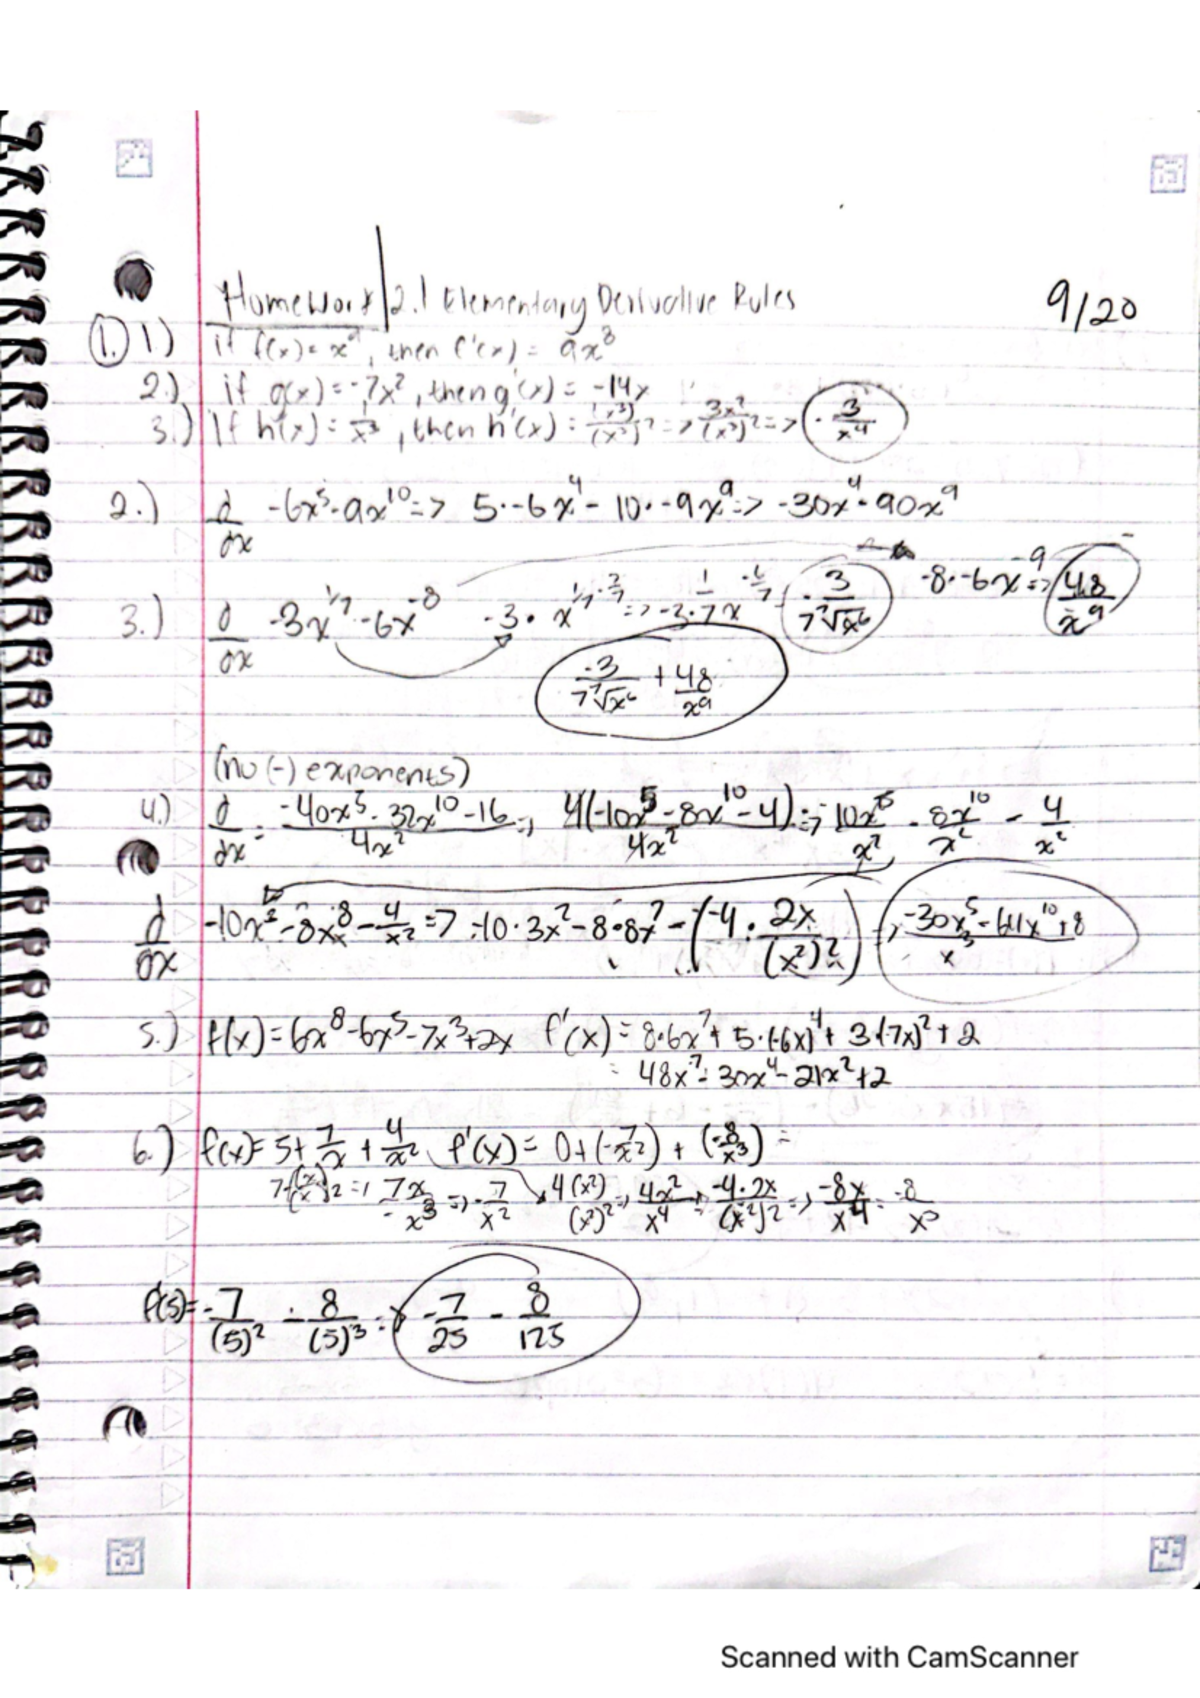 Homework 2.1 Elementary Derivative Rules 9/20
1. 1) if f(x) = x⁹, then f'(x) = 9x⁸
2.) if g(x) = -7x², then g'(x) = -14x
3.) If h(x) = 1/x³, then h'(x) = (x³)/(x³)² => 3x²/(x³)² => -3/x⁴
2.) d/dx -6x⁵-9x¹⁰ => 5·-6x⁴ - 10·-9x⁹ => -30x⁴-90x⁹
3.) d/dx -3x^(1/7)-6x^(-8) -3·x^(1/7-7/7) => -3·1/7x^(-6/7) -3/(7⁷√x⁶) -8·-6x^(-9) => 48/x⁹
-3/(7⁷√x⁶) + 48/x⁹
(no (-) exponents)
4.) d/dx = (-40x⁵-32x¹⁰-16)/4x² => 4(-10x⁵-8x¹⁰-4)/4x² => -10x⁵/x² - 8x¹⁰/x² - 4/x²
d/dx -10x³-8x⁸-4/x² => -10·3x²-8·8x⁷-(-4·2x/(x²)²) => (-30x⁵-64x¹⁰+8)/x³
5.) f(x)=6x⁸-6x⁵-7x³+2x f'(x)=8·6x⁷+5·(-6x)⁴+3·(-7x)²+2
= 48x⁷-30x⁴-21x²+2
6.) f(x)=5+7/x+4/x² f'(x)=0+(-7/x²)+(-8/x³)=
7·(x)/(x)² => -7x/x³ => -7/x² 4(x²)/(x²)² => 4x²/x⁴ => -4·2x/(x²)² => -8x/x⁴ = -8/x³
f'(5)=-7/(5)² - 8/(5)³ => -7/25 - 8/125
Scanned with CamScanner